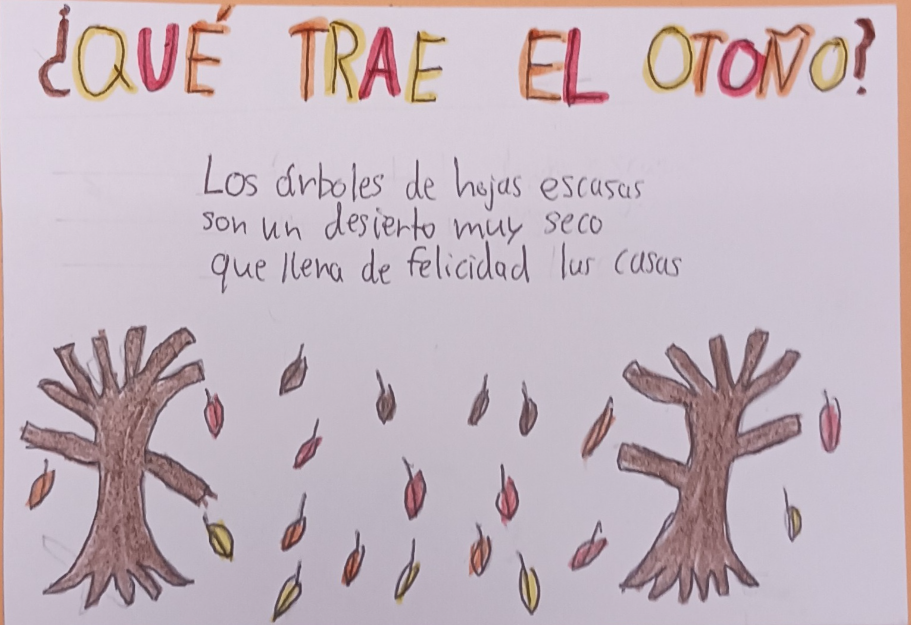 ¿QUÉ TRAE EL OTOÑO?
Los árboles de hojas escasas
son un desierto muy seco
que llena de felicidad las casas